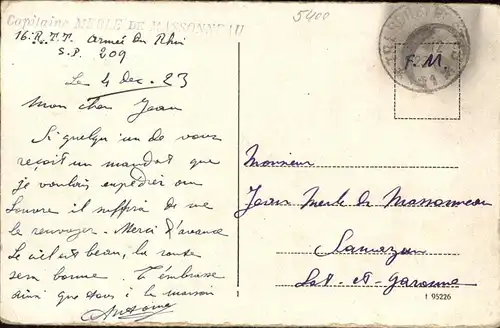 Capitaine MERLE DE MASSONNEAU
16. R.T.T. Armée du Rhin
S.P. 209
5400
Le 4 dec. 23
Mon cher Jean
Si quelqu'un de vous
reçoit un mandat que
je voulais expédier au
Louvre il suffira de me
le renvoyer. Merci d'avance
Le ciel est beau, la route
sera bonne. T'embrasse
ainsi que tous à la maison
Antoine
F.M.
Monsieur
Jean Merle de Massonneau
Lamazan
Lot-et-Garonne
1 95226